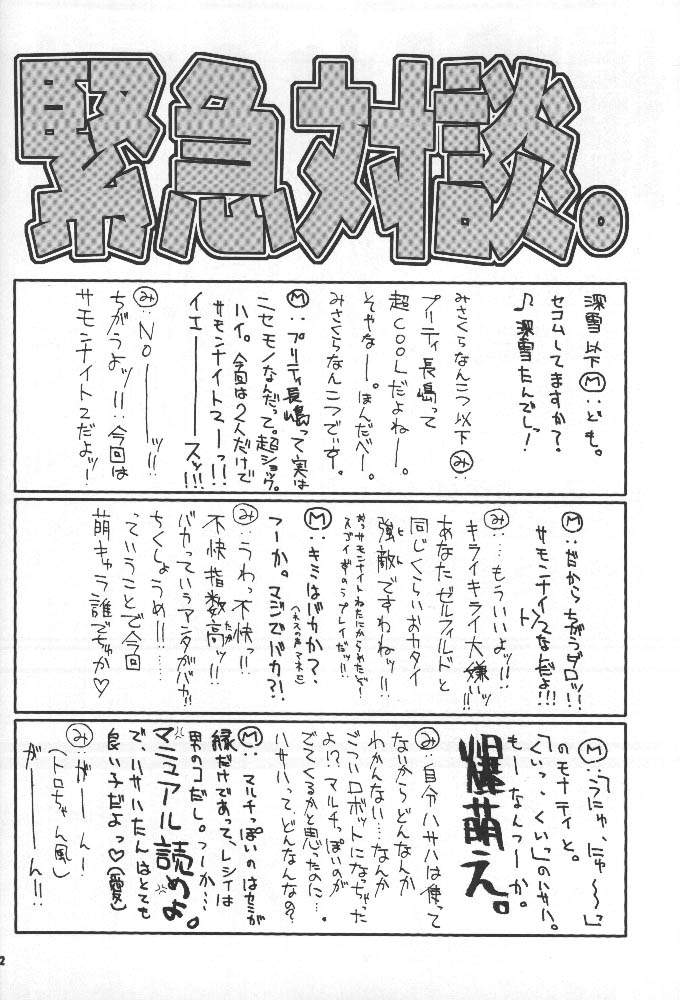 緊急対談。
深雪以下Ⓜ:ども。
セコムしてますか?
♪深雪たんでしっ!
みさくらなんこつ以下み:
プリティ長嶋って
超COOLだよねー。
そやなー。ほんだべー。
みさくらなんこつでいす。
Ⓜ:プリティ長嶋って実は
ニセモノなんだって。超ショック。
ハイ。今回は2人だけで
サモンナイトマーっ!!
イエーーースッ!!!
み:NOーーーッ!!
ちがうよッ!!:今回は
サモンナイト2だよッ!
Ⓜ:だからちがうダロッ!!
サモンナイン2なんだよ!!!
ト
み:…もういいよッ!
キライキライ大嫌いッ
あなたゼルフィルドと
同じくらいおカタイ
強敵ですわねッ!!
ヒト
おっサモンナイトねたにからられたぞ!
スゴイぞのうプレイだッ!!
Ⓜ:キミはバカか?、
(ネスの声マネで)
つーか。マジでバカ?!
み:うわっ不快っ!!
不快指数高ッ!!
たか
バカっていうアンタがバカ!!
ちくしょうめ!!……
っていうことで今回
萌キャラ誰でぃすか♡
Ⓜ:「うにゅ、にゅ〜〜」
のモナティと。
「くいっ、くいっ」のハサハ。
もーなんつーか。
爆萌え。
み:自分ハサハは使って
ないからどんなんか
わかんない…なんか
ごついロボットになちゃった
よ!?マルチっぽいのが
でてくるかと思ったのに…。
ハサハってどんなんなの?
Ⓜ:マルチっぽいのはセミが
縁だけであって、レシィは
男のコだし。つーか…
マニュアル読めよ。
で、ハサハたんはとても
良い子だよっ♡(愛)
み:がーん!
(トロちゃん風)
がーーーん!!
2